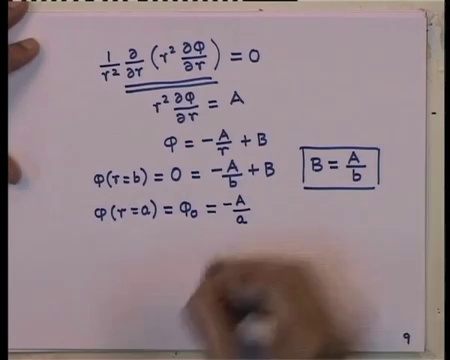 1/r² ∂/∂r (r² ∂φ/∂r) = 0
r² ∂φ/∂r = A
φ = -A/r + B
φ(r=b) = 0 = -A/b + B
B = A/b
φ(r=a) = φ₀ = -A/a
9